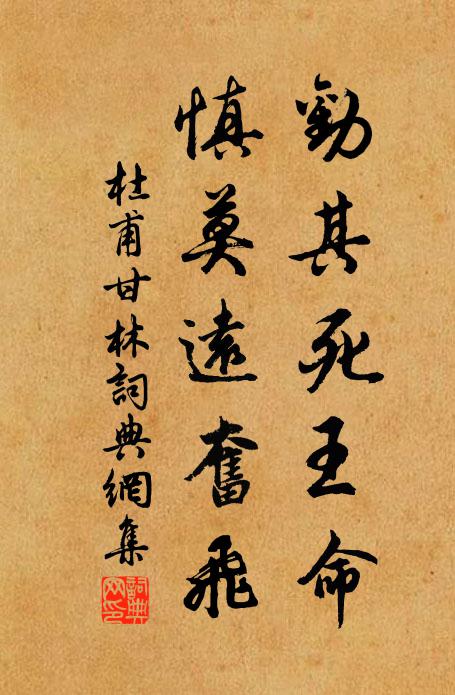 勸其死王命
慎莫遠奮飛
杜甫甘林詞典網集
詞典網印